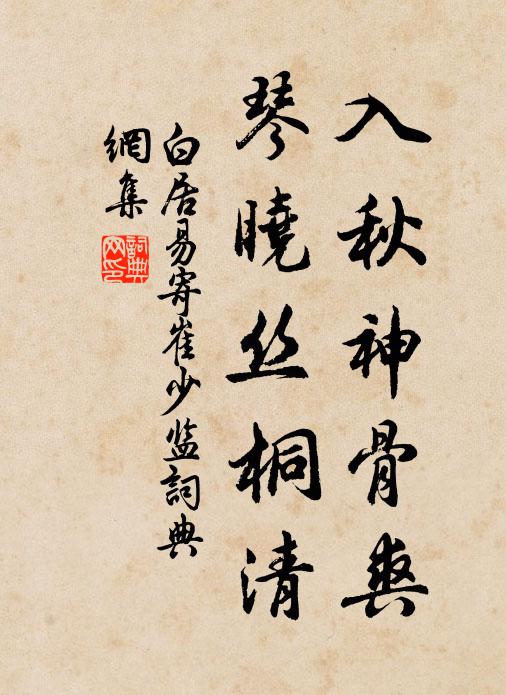 入秋神骨爽
琴曉丝桐清
白居易寄崔少监詞典
網集
詞典
网印